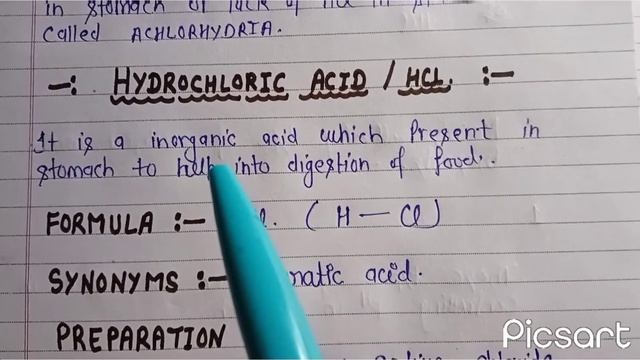 in stomach or lack of HCl in
Called ACHLORHYDRIA.
—: HYDROCHLORIC ACID / HCL. :—
It is a inorganic acid which Present in
stomach to help into digestion of food.
FORMULA :— (H — Cl)
SYNONYMS :— acid.
PREPARATION
Picsart